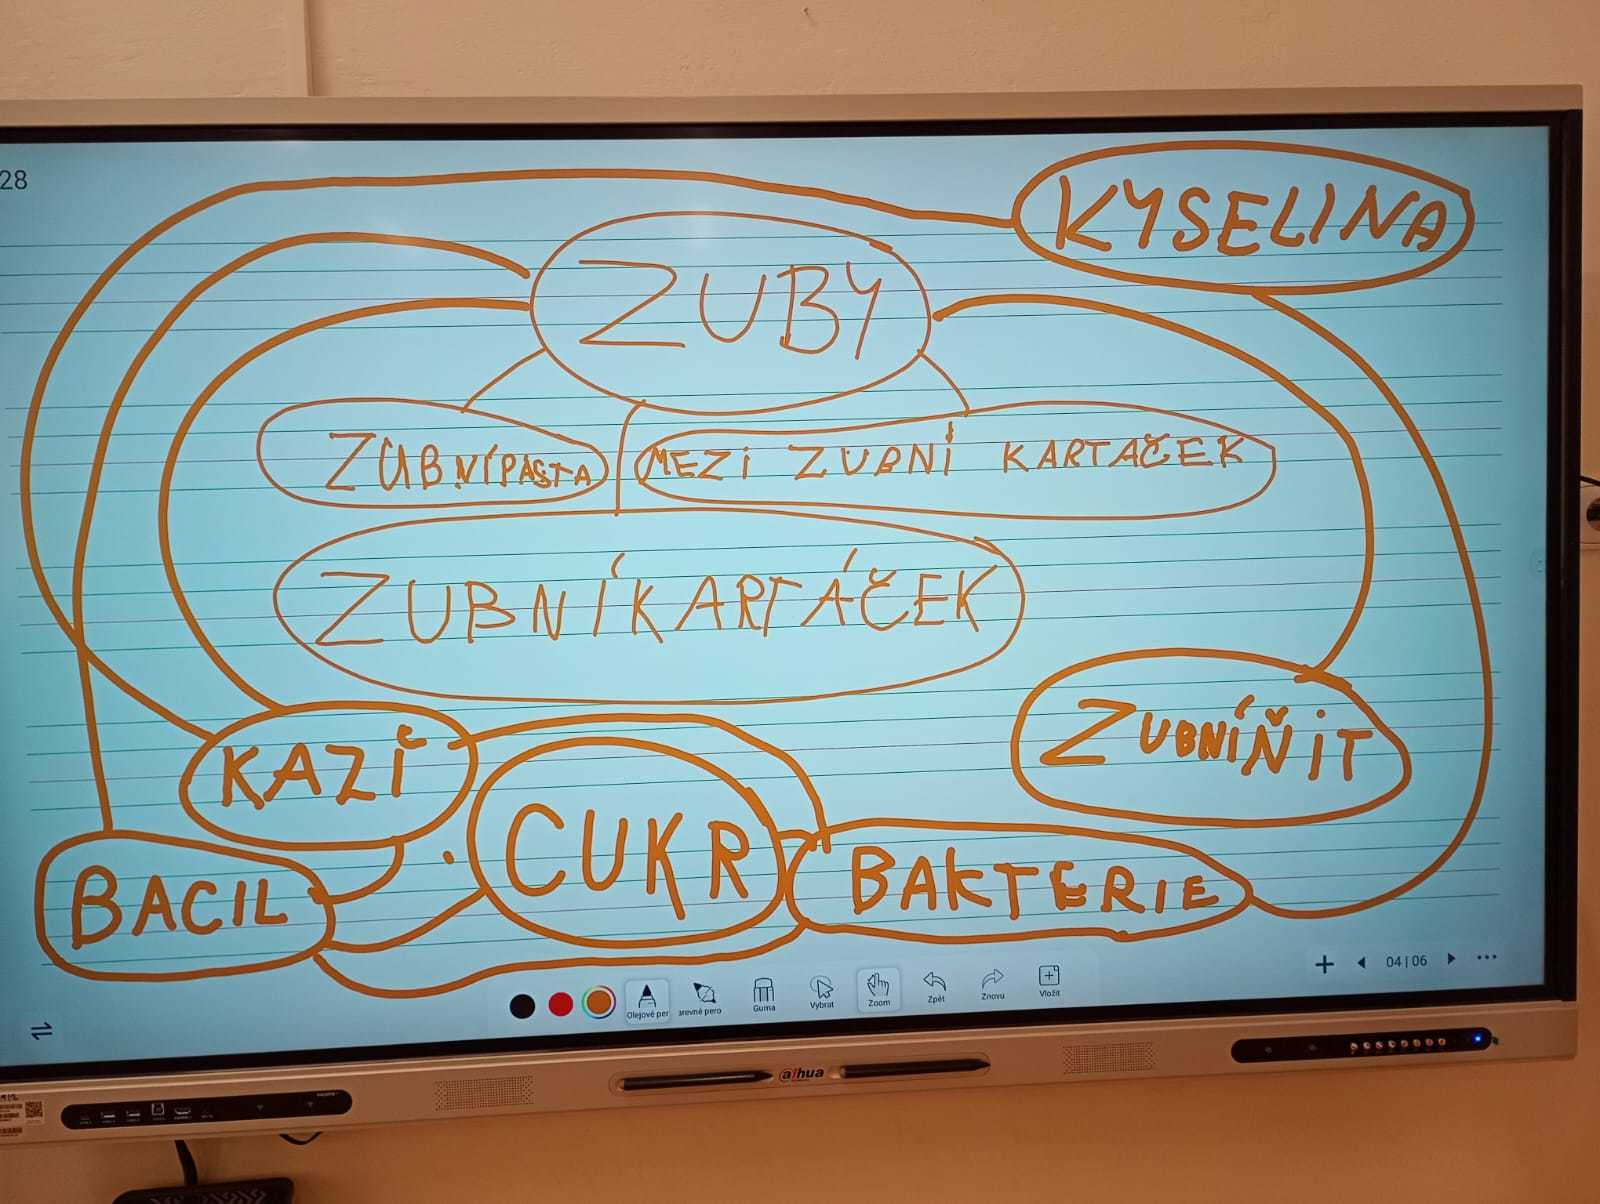 28
KYSELINA
ZUBY
ZUBNÍPASTA
MEZI ZUBNÍ KARTAČEK
ZUBNÍKARTÁČEK
ZUBNÍŇIT
KAZI
CUKR
BACIL
BAKTERIE
04|06
Olejové per
arevné pero
Guma
Vybrat
Zoom
Zpět
Znovu
Vložit
alhua